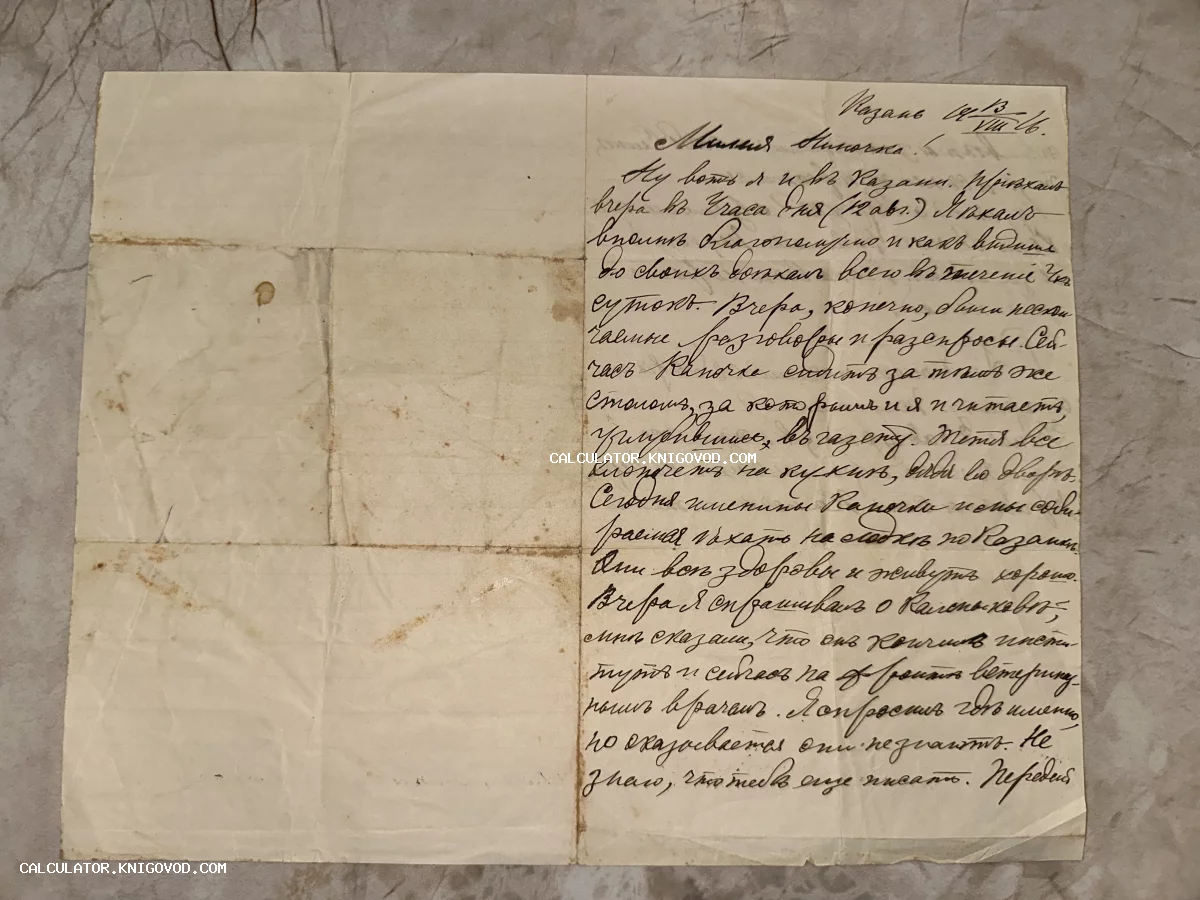 Казань 19 13/VIII 16.
Милая Ниночка!
Ну вотъ я и въ Казани. Пріѣхалъ
вчера въ 4 часа дня (12 авг.) Я ѣхалъ
вполнѣ благополучно и какъ видишь
до своихъ доѣхалъ всего въ теченіе 4хъ
сутокъ. Вчера, конечно, были нескон-
чаемые разговоры и разспросы. Сей-
часъ Капочка сидитъ за тѣмъ же
столомъ, за которымъ и я и читаетъ,
углубившись, въ газету. Тетя все
хлопочетъ на кухнѣ, дядя во дворѣ.
Сегодня именины Капочки и мы соби-
раемся ѣхать на лодкѣ по Казанкѣ.
Они всѣ здоровы и живутъ хорошо.
Вчера я спрашивалъ о
мнѣ сказали, что онъ кончилъ инсти-
тутъ и сейчасъ на фронтѣ ветеринар-
нымъ врачемъ. Я спросилъ гдѣ именно,
но оказывается они не знаютъ. Не
знаю, что тебѣ еще писать. Передай
CALCULATOR.KNIGOVOD.COM
CALCULATOR.KNIGOVOD.COM